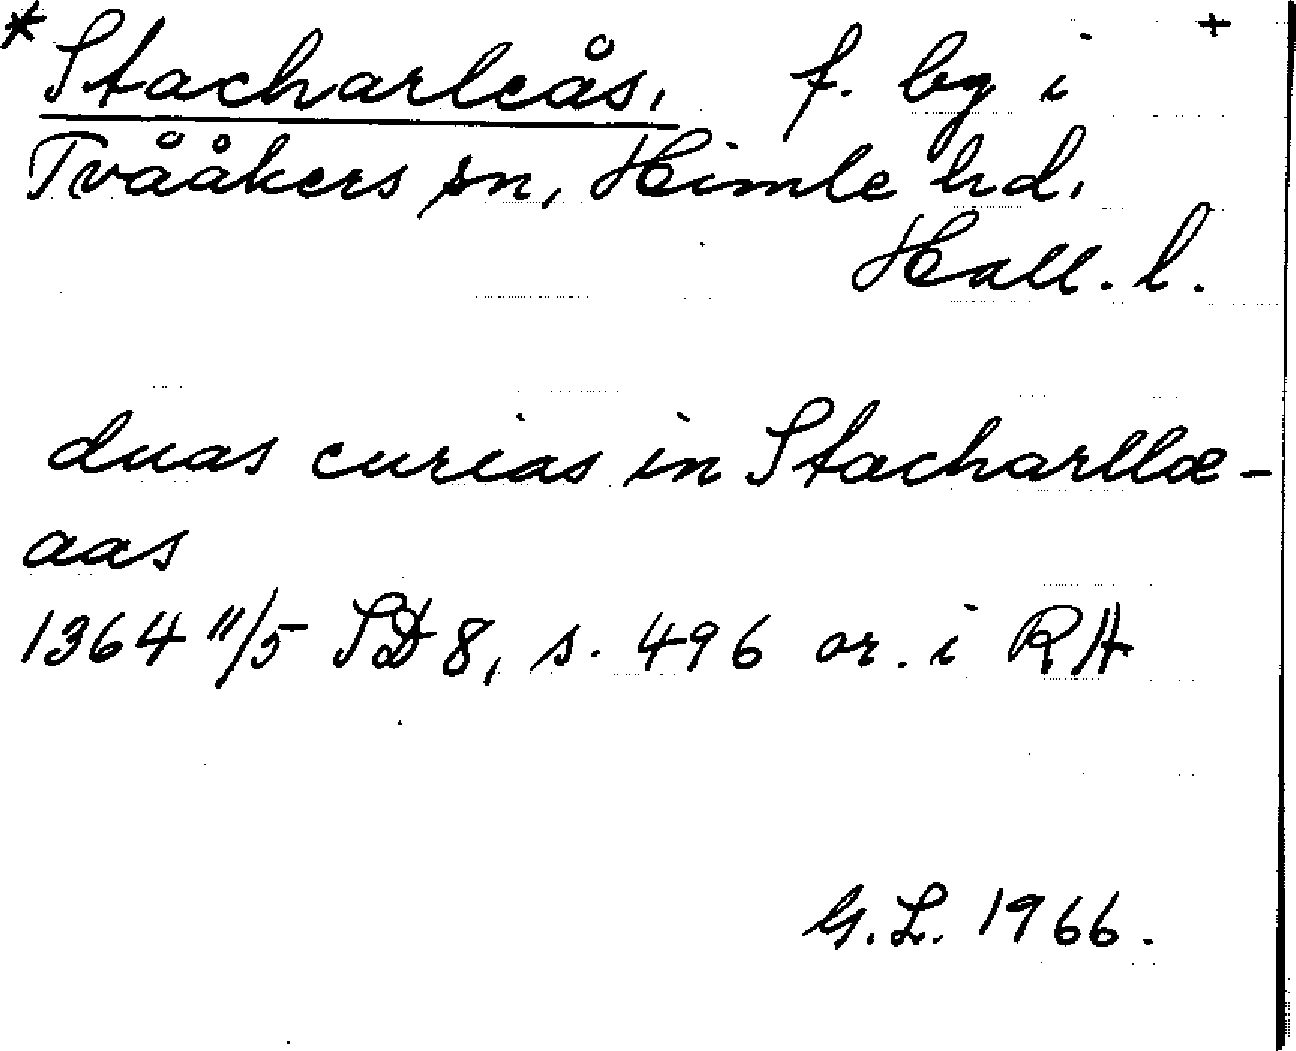 *Stacharleås, f. bg i +
Tvååkers sn, Himle hd.
Hall. l.
duas curias in Stacharllæ-
aas
1364 11/5 SD 8, s. 496 or. i RA
G.L. 1966.